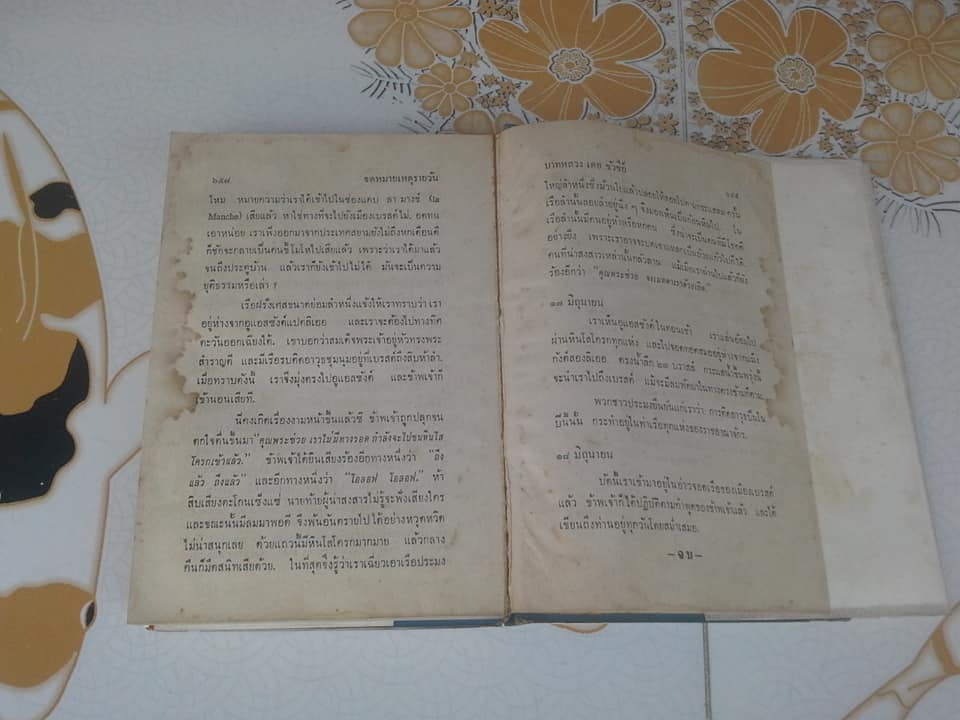 ๖๕๘ จดหมายเหตุรายวัน
ไหม หมายความว่าเราได้เข้าไปในช่องแคบ ลา มางช์ (la
Manche) เสียแล้ว หาใช่ทางที่จะไปยังเมืองเบรสต์ไม่. อดทน
เอาหน่อย เราเพิ่งออกมาจากประเทศสยามยังไม่ถึงหกเดือนดี
ก็ชักจะกลายเป็นคนขี้โมโหไปเสียแล้ว เพราะว่าเราได้มาแล้ว
จนถึงประตูบ้าน แล้วเราก็ยังเข้าไปไม่ได้ มันจะเป็นความ
ยุติธรรมหรือเล่า ?
เรือฝรั่งเศสขนาดย่อมลำหนึ่งแจ้งให้เราทราบว่า เรา
อยู่ห่างจากอูแอสซังค์แปดลิเออ และเราจะต้องไปทางทิศ
ตะวันออกเฉียงใต้. เขาบอกว่าสมเด็จพระเจ้าอยู่หัวทรงพระ
สำราญดี และมีเรือรบติดอาวุธชุมนุมอยู่ที่เบรสต์ถึงสิบห้าลำ.
เมื่อทราบดังนี้ เราจึงมุ่งตรงไปอูแอสซังค์ และข้าพเจ้าก็
เข้านอนเสียที.
นี่คงเกิดเรื่องงามหน้าขึ้นแล้วซิ ข้าพเจ้าถูกปลุกจน
ตกใจตื่นขึ้นมา "คุณพระช่วย เราไม่มีทางรอด กำลังจะไปชนหินโส
โครกเข้าแล้ว." ข้าพเจ้าได้ยินเสียงร้องอีกทางหนึ่งว่า "ถึง
แล้ว ถึงแล้ว" และอีกทางหนึ่งว่า "โอลอฟ โอลอฟ." ห้า
สิบเสียงตะโกนเซ็งแซ่ นายท้ายผู้น่าสงสารไม่รู้จะฟังเสียงใคร
และขณะนั้นมีลมมาพอดี จึงพ้นอันตรายไปได้อย่างหวุดหวิด
ไม่น่าสนุกเลย ด้วยแถวนั้นมีหินโสโครกมากมาย แล้วกลาง
คืนก็มืดสนิทเสียด้วย. ในที่สุดจึงรู้ว่าเราเฉี่ยวเอาเรือประมง
บาทหลวง เดอ ชัวซีย์ ๖๕๙
ใหญ่ลำหนึ่งซึ่งม้วนใบแล้วปล่อยให้ลอยไปตามกระแสลม ครั้น
เรือลำนั้นลอยลำอยู่นิ่ง ๆ จึงมองเห็นเป็นก้อนหินไป. ใน
เรือลำนั้นมีคนอยู่ห้าหรือหกคน ซึ่งน่าจะเป็นคนที่มีโชคดี
อย่างยิ่ง เพราะเราอาจจะบดเขาแหลกเป็นภัยแก่ไปก็ได้.
คนที่น่าสงสารเหล่านั้นกลัวลาน แม้เมื่อเราผ่านไปแล้วก็ยัง
ร้องอีกว่า "คุณพระช่วย จงเมตตาเราด้วยเถิด"
๑๗ มิถุนายน
เราเห็นอูแอสซังค์ในตอนเช้า เราแล่นอ้อมไป
ผ่านหินโสโครกทุกแห่ง และไปจอดทอดสมออยู่ห่างจากแผ่น
กังค์สองลิเออ ตรงน้ำลึก ๒๘ บราสส์. กระแสน้ำขึ้นพรุ่งนี้
จะนำเราไปถึงเบรสต์ แม้จะมีลมพัดมาในทางตรงข้ามก็ตาม.
พวกชาวประมงยืนยันแก่เราว่า การติดอาวุธเป็นใน
ปีนี้นั้น กระทำอยู่ในท่าเรือทุกแห่งของราชอาณาจักร.
๑๘ มิถุนายน
บัดนี้เราเข้ามาอยู่ในอ่าวจอดเรือของเมืองเบรสต์
แล้ว ข้าพเจ้าก็ได้ปฏิบัติตามคำพูดของข้าพเจ้าแล้ว และได้
เขียนถึงท่านอยู่ทุกวันโดยสม่ำเสมอ.
—จบ—